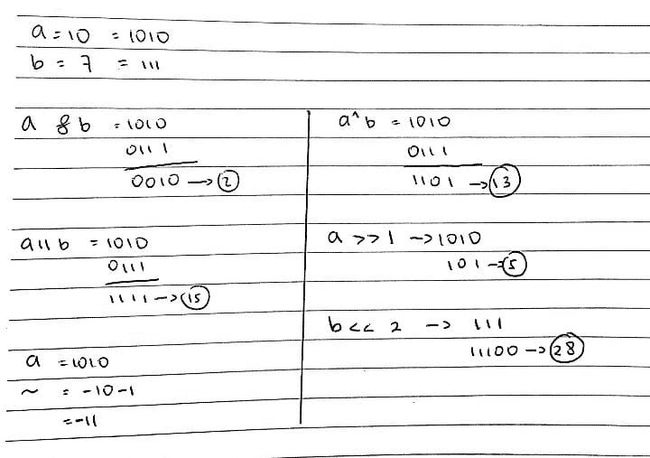 a = 10 = 1010
b = 7 = 111
a & b = 1010
0111
0010 → 2
a || b = 1010
0111
1111 → 15
a = 1010
~ = -10-1
= -11
a^b = 1010
0111
1101 → 13
a >> 1 → 1010
101 → 5
b << 2 → 111
11100 → 28